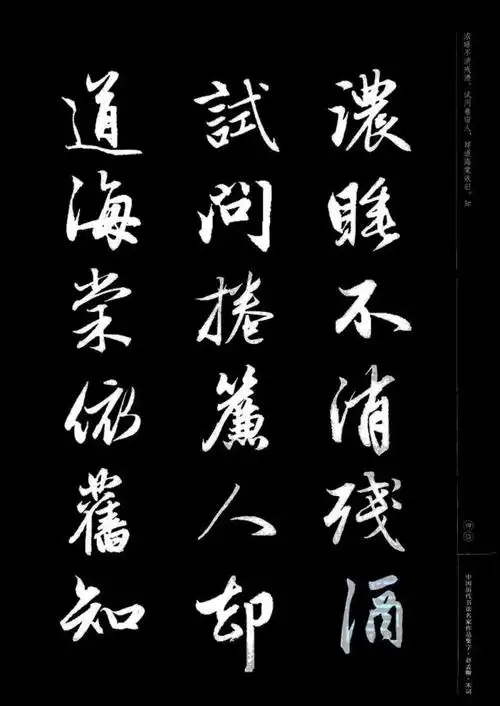 濃睡不消殘酒
試問捲簾人却
道海棠依舊知
浓睡不消残酒。试问卷帘人,却道海棠依旧。知
四〇
中国历代书法名家作品集字·赵孟頫·宋词